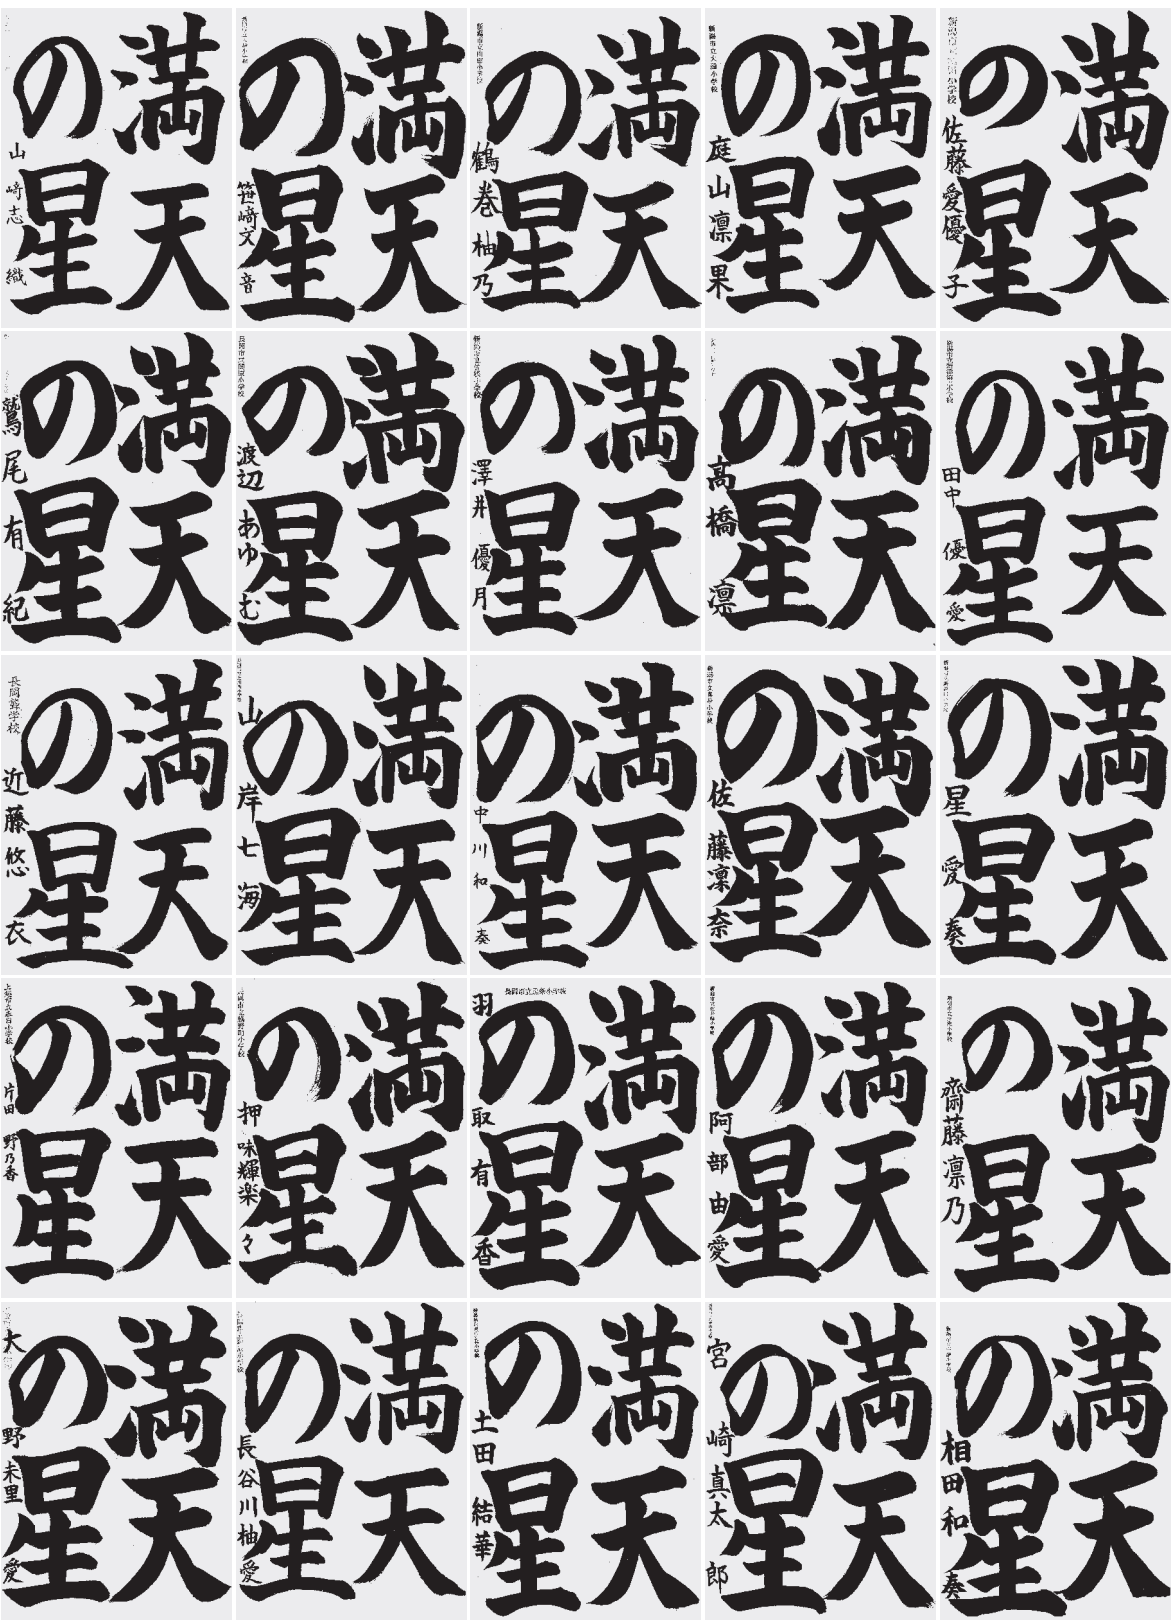 満天
の星
山﨑志織
満天
の星
笹﨑文音
満天
の星
鶴巻柚乃
満天
の星
庭山凛果
満天
の星
佐藤愛優子
満天
の星
鷲尾有紀
満天
の星
渡辺あゆむ
満天
の星
澤井優月
満天
の星
高橋凛
満天
の星
田中優愛
満天
の星
近藤悠衣
満天
の星
山岸七海
満天
の星
中川和奏
満天
の星
佐藤凛奈
満天
の星
星愛奏
満天
の星
片田野乃香
満天
の星
押味輝楽々
満天
の星
羽取有香
満天
の星
阿部由愛
満天
の星
齋藤凛乃
満天
の星
大野未里愛
満天
の星
長谷川柚愛
満天
の星
土田結華
満天
の星
宮崎真太郎
満天
の星
相田和奏